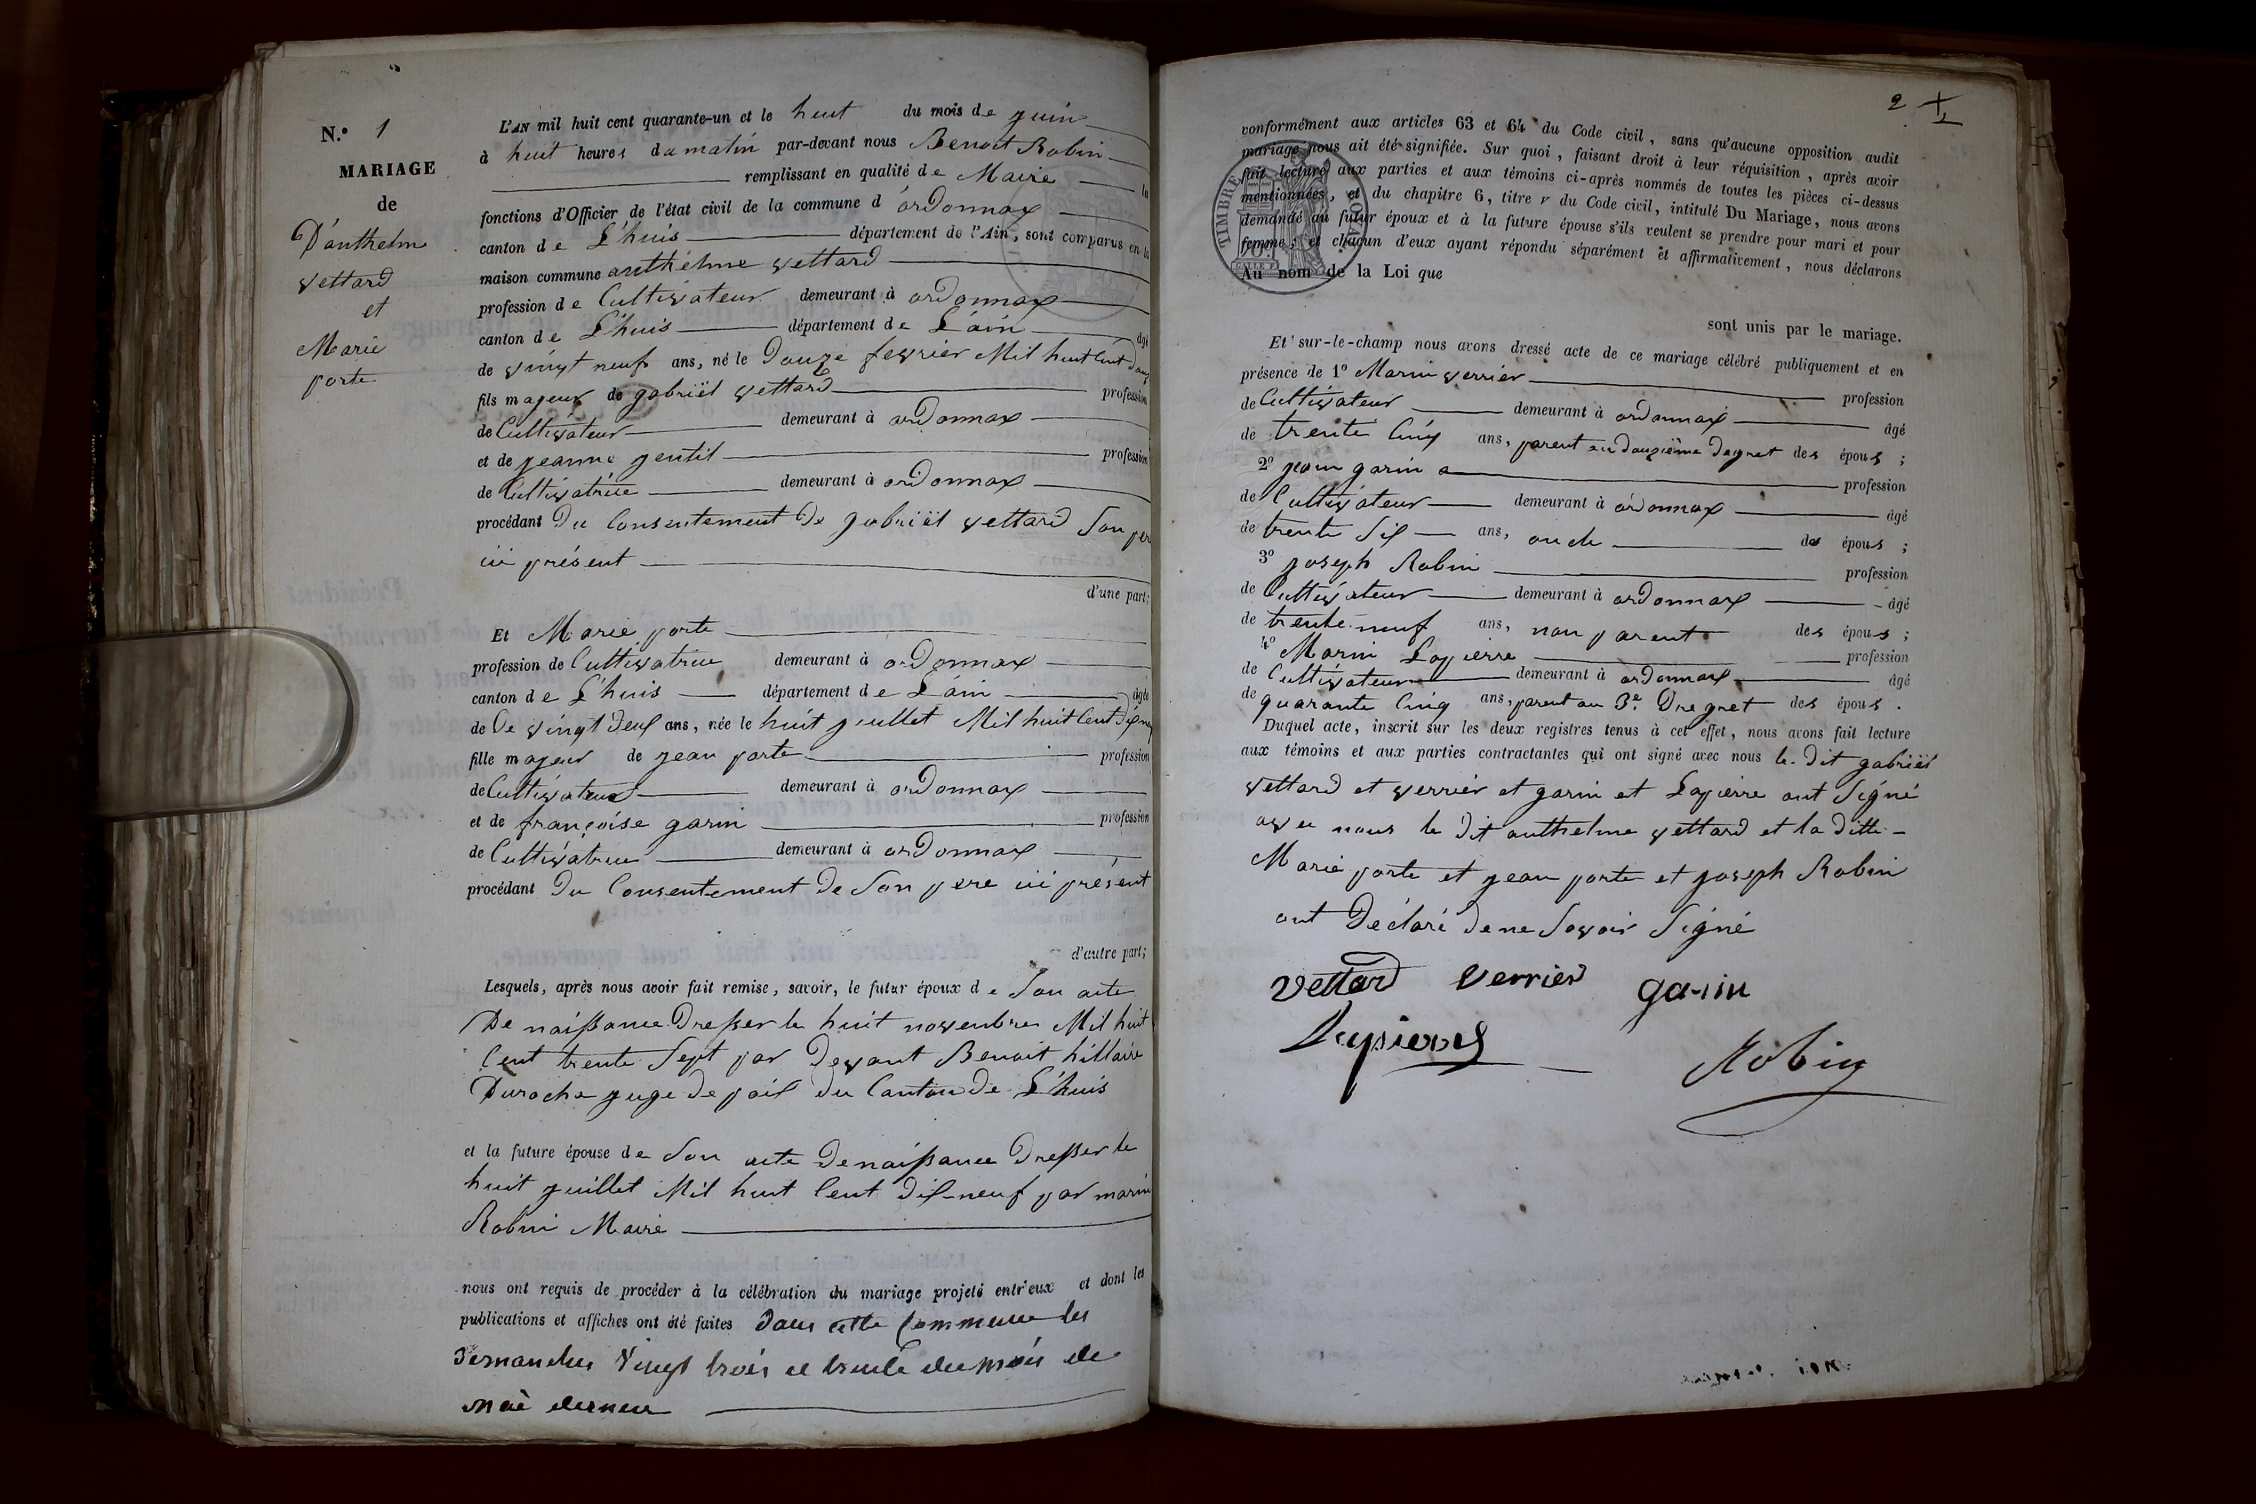 N.° 1
MARIAGE
de
D'anthelme
vettard
et
Marie
porte
L'AN mil huit cent quarante-un et le huit du mois de juin
à huit heures du matin par-devant nous Benoit Robin
remplissant en qualité de Maire les
fonctions d'Officier de l'état civil de la commune d'ordonnax
canton de L'huis département de l'Ain, sont comparus en la
maison commune anthelme vettard
profession de Cultivateur demeurant à ordonnax
canton de L'huis département de L'ain âgé
de vingt neuf ans, né le Douze fevrier Mil huit Cent douze
fils majeur de gabriël vettard profession
de Cultivateur demeurant à ordonnax
et de jeanne gentil profession
de Cultivatrice demeurant à ordonnax
procédant Du Consentement De gabriël vettard Son pere
ici présent
d'une part;
Et Marie porte
profession de Cultivatrice demeurant à ordonnax
canton de L'huis département de L'ain âgée
de De vingt deux ans, née le huit juillet Mil huit Cent dix neuf
fille majeur de jean porte profession
de Cultivateur demeurant à ordonnax
et de françoise garin profession
de Cultivatrice demeurant à ordonnax
procédant Du Consentement De Son pere ici présent
d'autre part;
Lesquels, après nous avoir fait remise, savoir, le futur époux de Son acte
De naissance Dresser le huit novembre Mil huit
Cent trente Sept par Devant Benoit hillaire
Duroche juge de paix du Canton de L'huis
et la future épouse de Son acte De naissance Dresser le
huit juillet Mil huit Cent dix-neuf par marin
Robin Maire
nous ont requis de procéder à la célébration du mariage projeté entr'eux et dont les
publications et affiches ont été faites dans cette Commune les
Dimanches vingt trois et trente du mois de
mai dernier
2
conformément aux articles 63 et 64 du Code civil, sans qu'aucune opposition audit
mariage nous ait été signifiée. Sur quoi, faisant droit à leur réquisition, après avoir
fait lecture aux parties et aux témoins ci-après nommés de toutes les pièces ci-dessus
mentionnées, et du chapitre 6, titre v du Code civil, intitulé Du Mariage, nous avons
demandé au futur époux et à la future épouse s'ils veulent se prendre pour mari et pour
femme; et chacun d'eux ayant répondu séparément et affirmativement, nous déclarons
Au nom de la Loi que
TIMBRE ROYAL
sont unis par le mariage.
Et sur-le-champ nous avons dressé acte de ce mariage célébré publiquement et en
présence de 1° Marin verrier profession
de Cultivateur demeurant à ordonnax âgé
de trente Cinq ans, parent au douzième Degret des épous;
2° jean garin profession
de Cultivateur demeurant à ordonnax âgé
de trente Six ans, oncle des épous;
3° joseph Robin profession
de Cultivateur demeurant à ordonnax âgé
de trente neuf ans, non parent des épous;
4° Marin Lapierre profession
de Cultivateur demeurant à ordonnax âgé
de quarante Cinq ans, parent au 3e. Dregret des épous.
Duquel acte, inscrit sur les deux registres tenus à cet effet, nous avons fait lecture
aux témoins et aux parties contractantes qui ont signé avec nous le dit gabriël
vettard et verrier et garin et Lapierre ont Signé
avec nous le Dit anthelme vettard et la ditte
Marie porte et jean porte et joseph Robin
ont Déclaré de ne Savoir Signé
Vettard Verrier garin
Lapierre
Robin